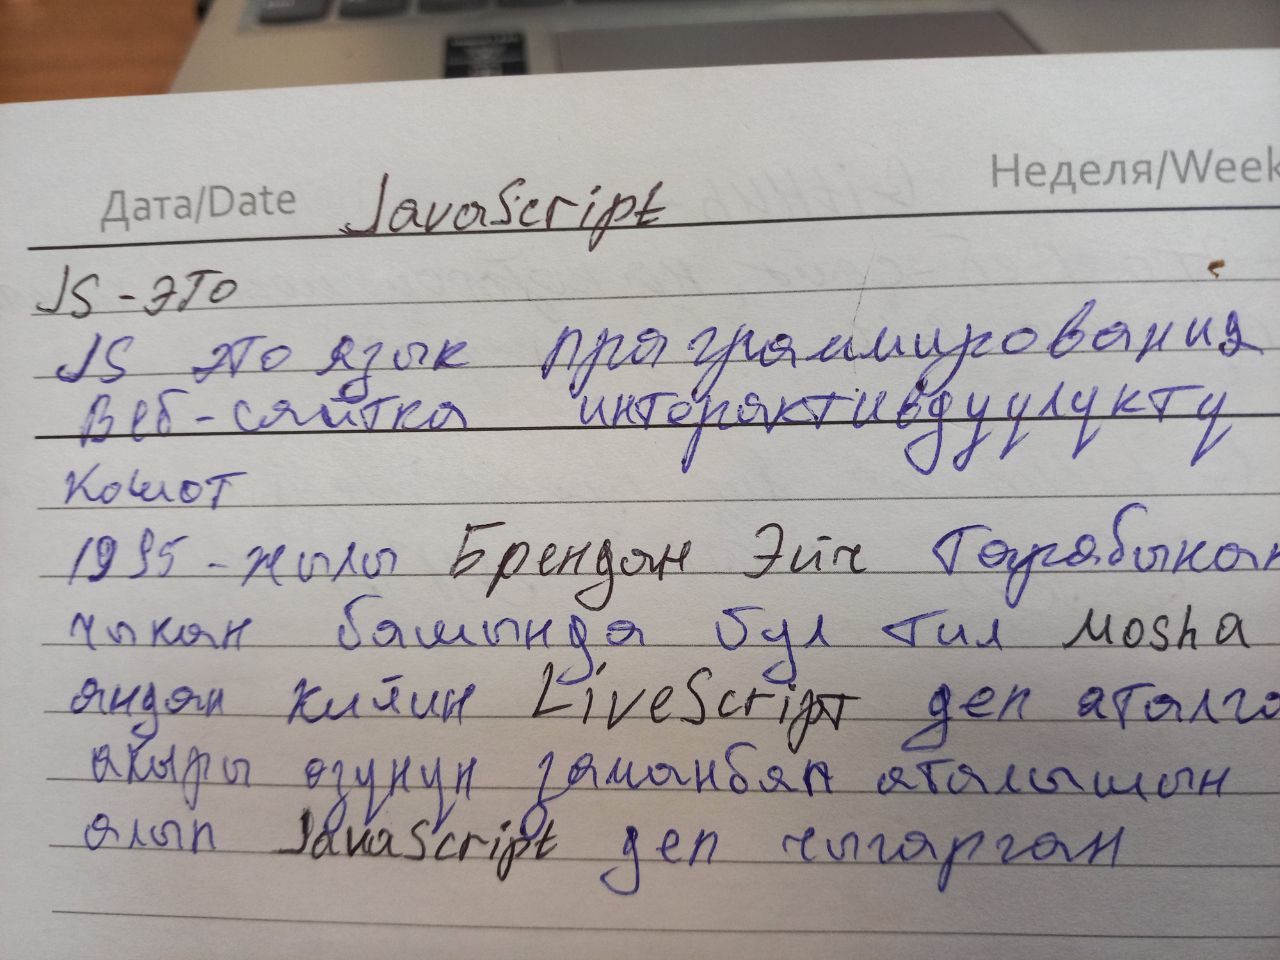 Дата/Date JavaScript Неделя/Week
JS - это
JS это язык программирования
Веб-сайтка интерактивдуулукту
кошот
1995-жылы Брендан Эйч тарабынан
чыккан башында бул тил Mosha
андан кийин LiveScript деп аталга
акыры озунун заманбап аталышын
алып JavaScript деп чыгарган